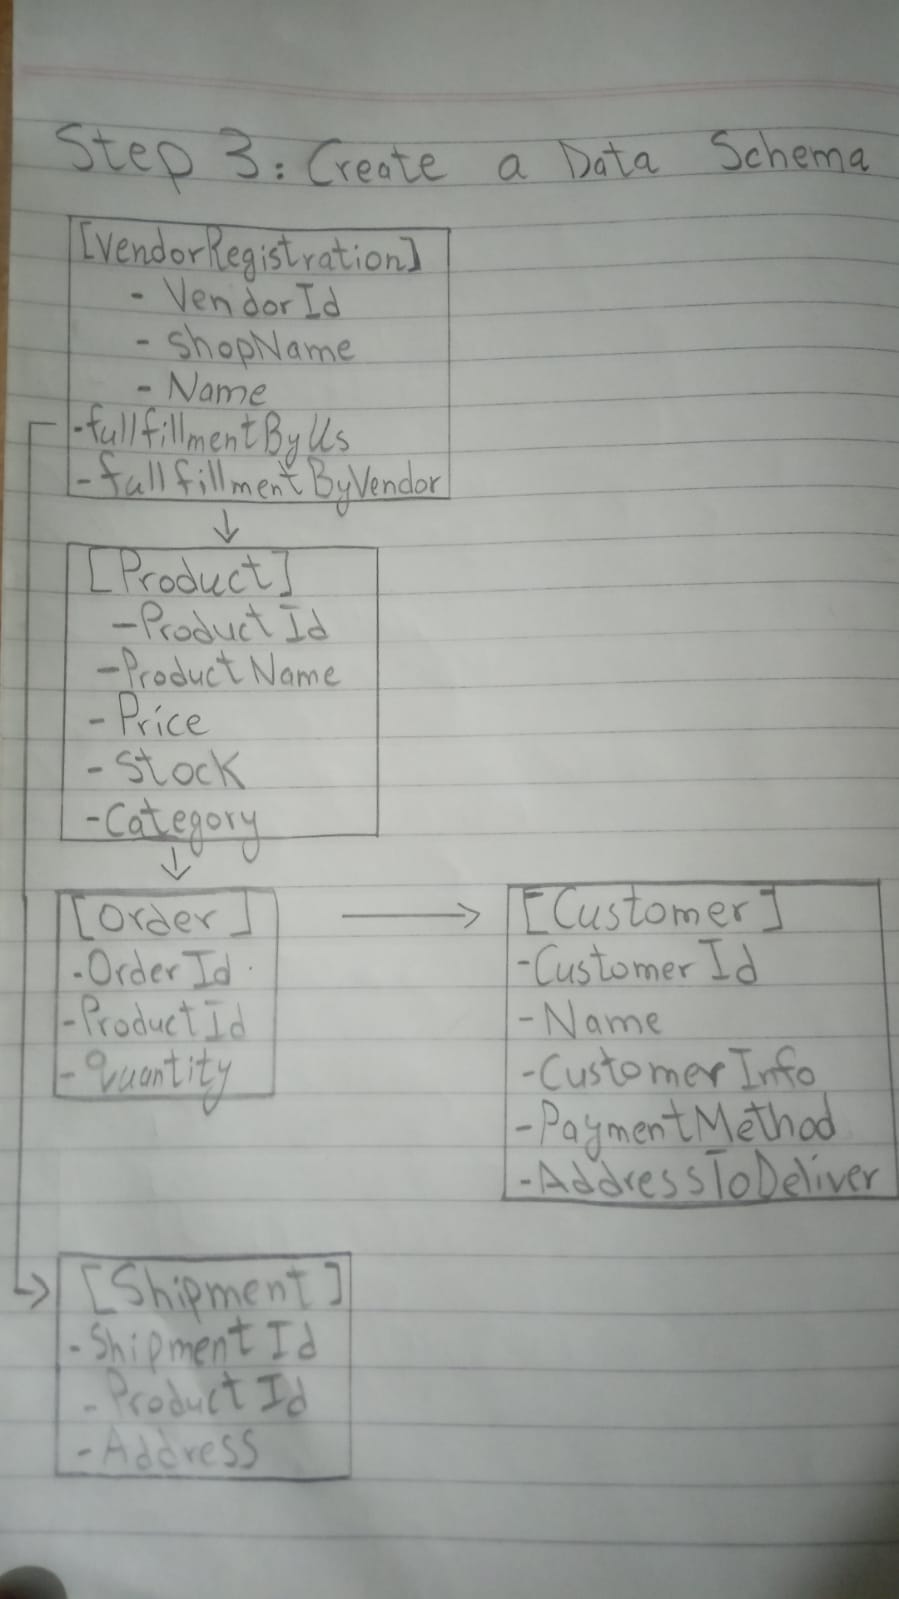 Step 3: Create a Data Schema
[VendorRegistration]
- VendorId
- ShopName
- Name
-fullfillmentByUs
-fullfillmentByVendor
↓
[Product]
-ProductId
-ProductName
-Price
-Stock
-Category
↓
[Order] → [Customer]
-OrderId
-ProductId
-Quantity
-CustomerId
-Name
-CustomerInfo
-PaymentMethod
-AddressToDeliver
[Shipment]
-ShipmentId
-ProductId
-Address